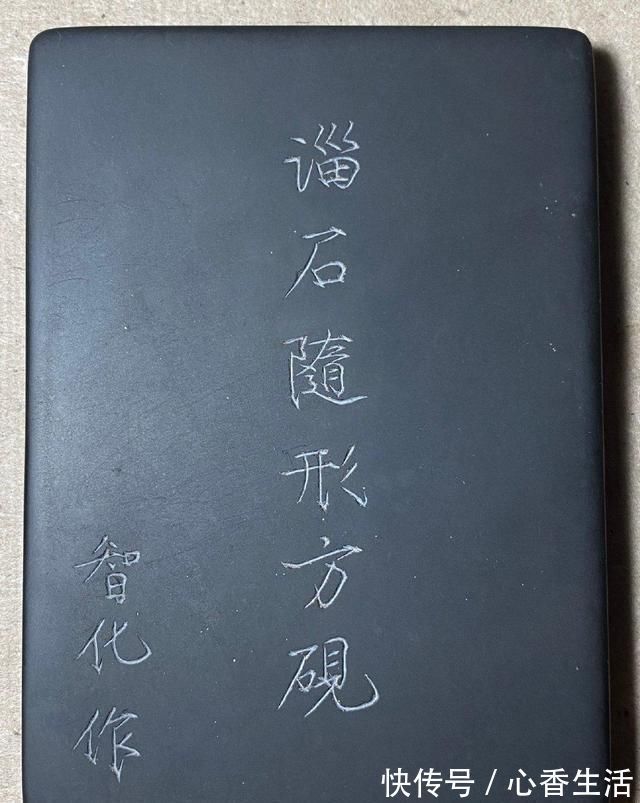 淄石隨形方硯
智化作
快传号 / 心香生活